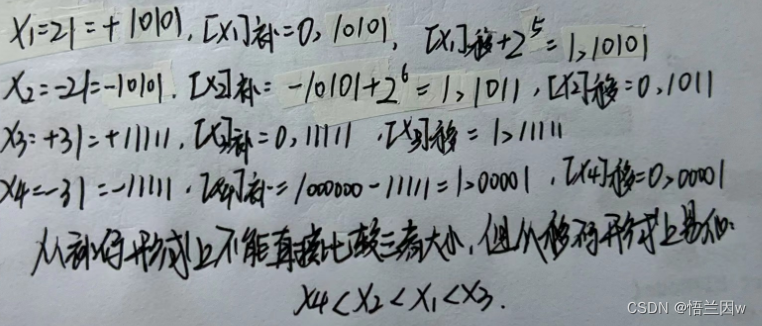 X1=21=+10101, [X1]补=0,10101, [X1]移+2^5=1,10101
X2=-21=-10101. [X2]补= -10101+2^6=1,1011, [X2]移=0,1011
X3=+31=+11111, [X3]补=0,11111 .[X3]移=1,11111
X4=-31=-11111. [X4]补=1000000-11111=1,00001, [X4]移=0,00001
从补码形式上不能直接比较三者大小,但从移码形式上易知:
X4<X2<X1<X3.
CSDN @悟兰因w